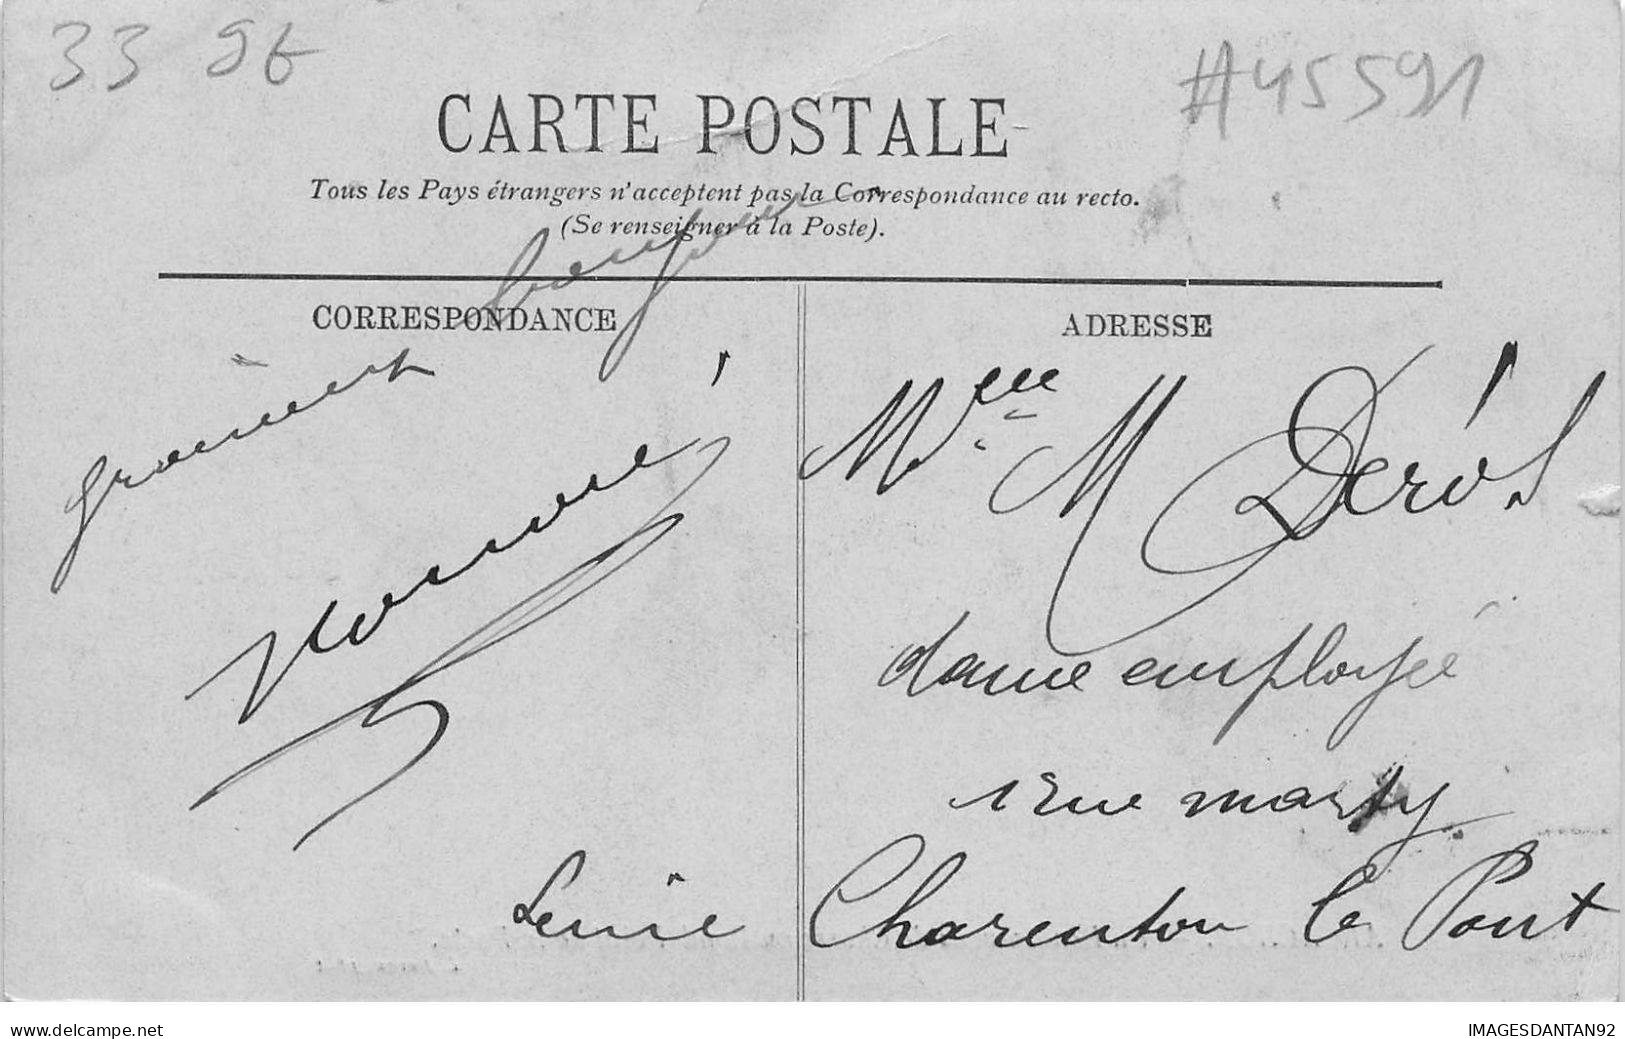 33 96
#45591
CARTE POSTALE
Tous les Pays étrangers n'acceptent pas la Correspondance au recto.
(Se renseigner à la Poste).
CORRESPONDANCE
ADRESSE
Mlle M Derós
dame employée
1 rue marty
Charenton le Pont
www.delcampe.net
IMAGESDANTAN92